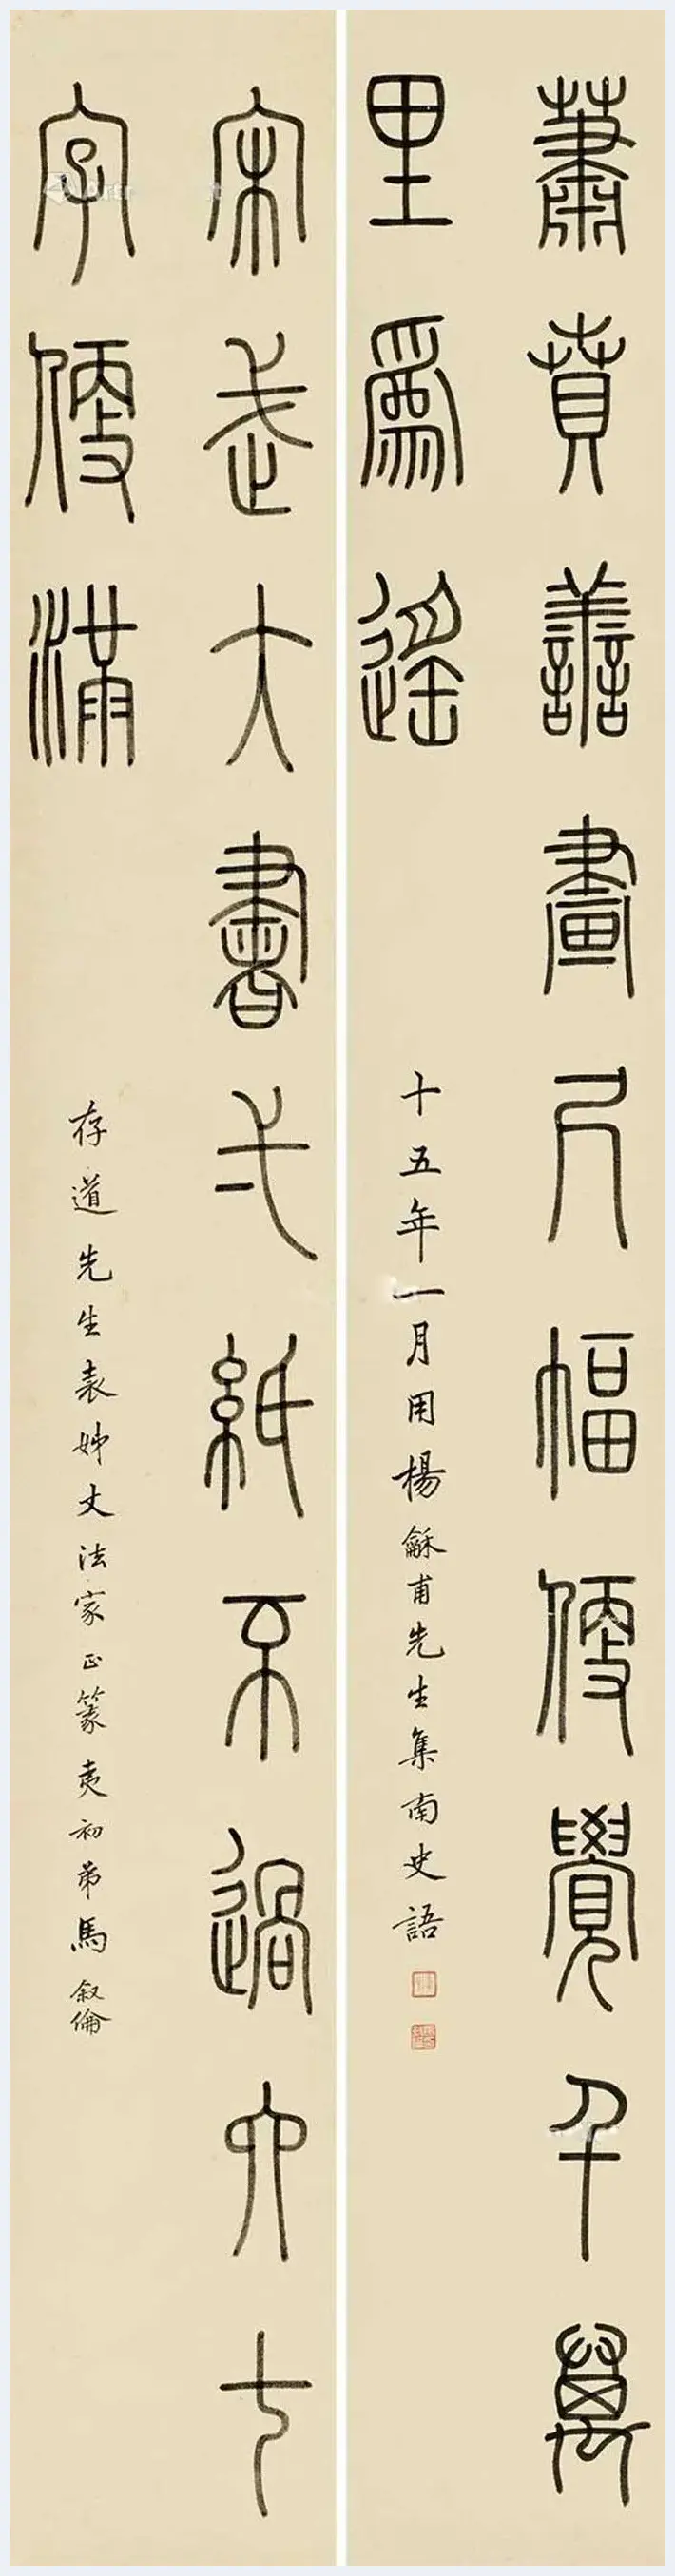 蕭賁善畫尺幅便覺千萬
里為遙
十五年一月用楊龢甫先生集南史語
宋武大書弌紙不過六七
字便滿
存道先生表姊丈法家正篆夷初弟馬叙倫